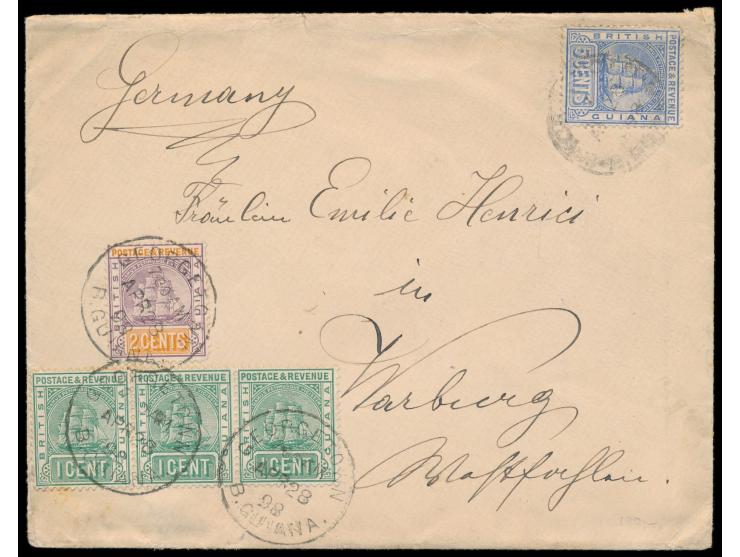 Germany
BRITISH
POSTAGE & REVENUE
5 CENTS
GUIANA
Fräulein Emilie Henrici
in
Warburg
Westfahlen.
POSTAGE & REVENUE
BRITISH
2 CENTS
POSTAGE & REVENUE
BRITISH
GUIANA
1 CENT
POSTAGE & REVENUE
BRITISH
GUIANA
1 CENT
POSTAGE & REVENUE
BRITISH
GUIANA
1 CENT
GEORGETOWN
AP 28
98
B. GUIANA.